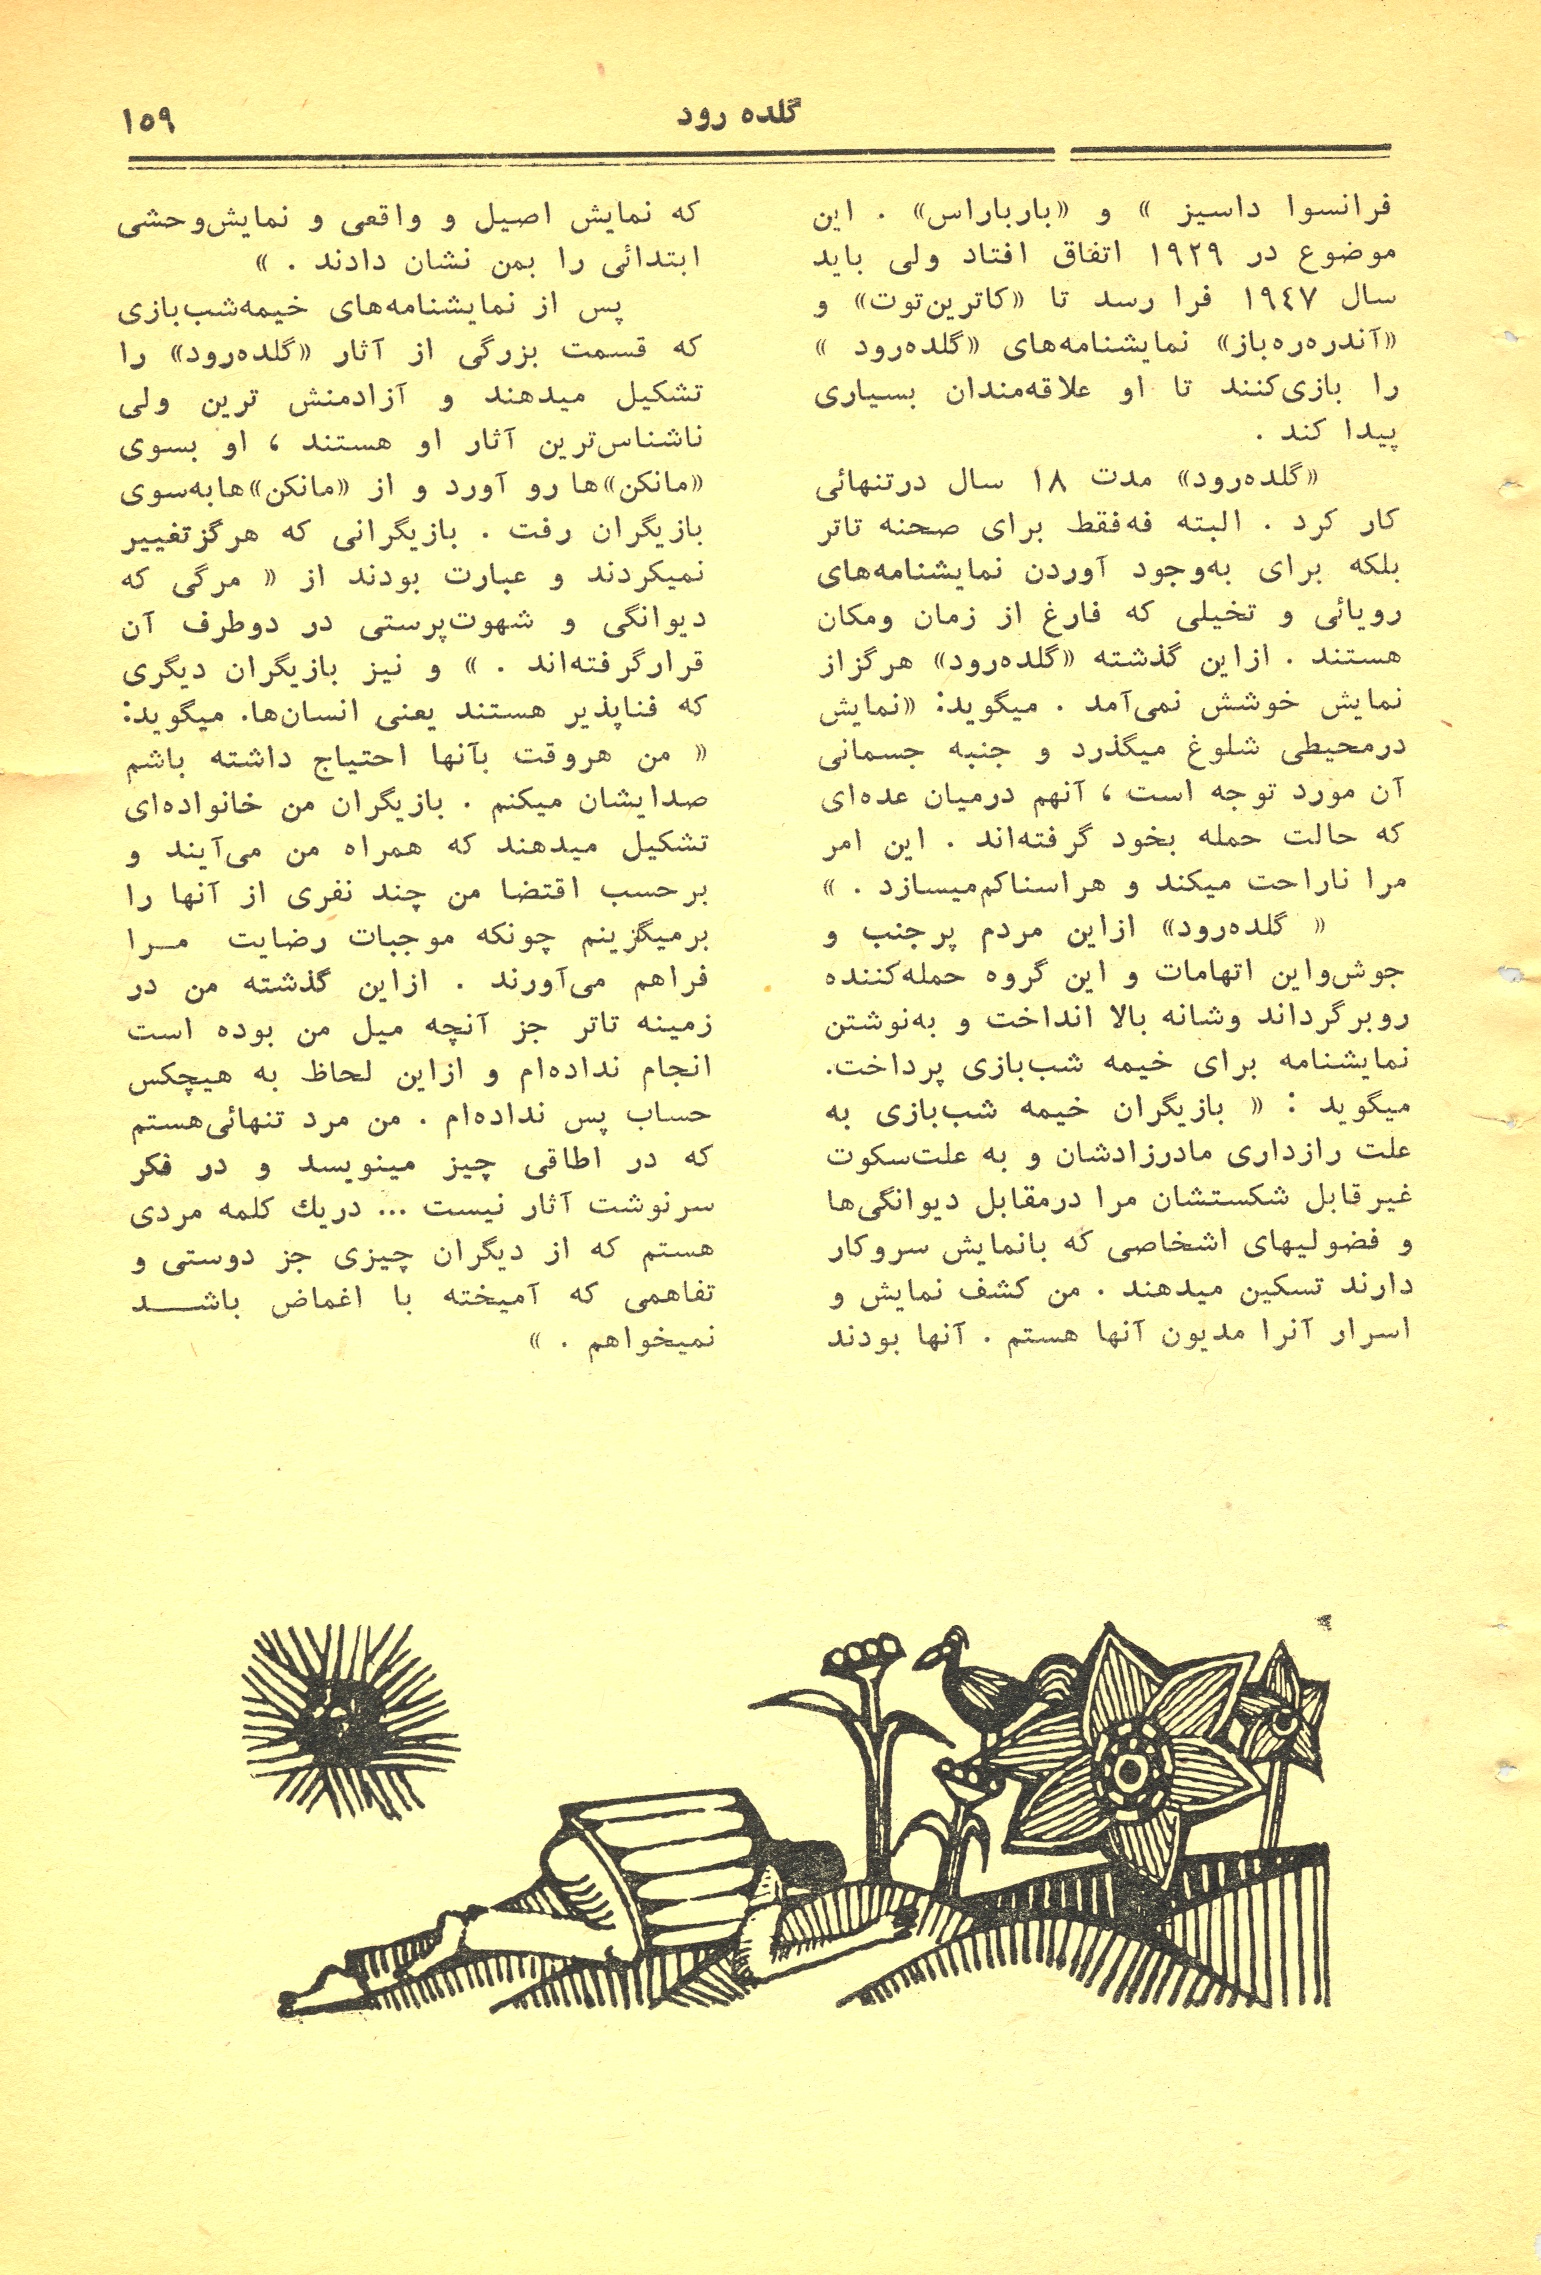 گلده رود
۱۵۹
فرانسوا داسیز » و «بارباراس» . این
موضوع در ۱۹۲۹ اتفاق افتاد ولی باید
سال ۱۹٤۷ فرا رسد تا «کاترین‌توت» و
«آندره‌ره‌باز» نمایشنامه‌های «گلده‌رود »
را بازی‌کنند تا او علاقه‌مندان بسیاری
پیدا کند .
«گلده‌رود» مدت ۱۸ سال درتنهائی
کار کرد . البته فه‌فقط برای صحنه تاتر
بلکه برای به‌وجود آوردن نمایشنامه‌های
رویائی و تخیلی که فارغ از زمان ومکان
هستند . ازاین گذشته «گلده‌رود» هرگزاز
نمایش خوشش نمی‌آمد . میگوید: «نمایش
درمحیطی شلوغ میگذرد و جنبه جسمانی
آن مورد توجه است ، آنهم درمیان عده‌ای
که حالت حمله بخود گرفته‌اند . این امر
مرا ناراحت میکند و هراسناکم‌میسازد . »
« گلده‌رود» ازاین مردم پرجنب و
جوش‌واین اتهامات و این گروه حمله‌کننده
روبرگرداند وشانه بالا انداخت و به‌نوشتن
نمایشنامه برای خیمه شب‌بازی پرداخت.
میگوید : « بازیگران خیمه شب‌بازی به
علت رازداری مادرزادشان و به علت‌سکوت
غیرقابل شکستشان مرا درمقابل دیوانگی‌ها
و فضولیهای اشخاصی که بانمایش سروکار
دارند تسکین میدهند . من کشف نمایش و
اسرار آنرا مدیون آنها هستم . آنها بودند
که نمایش اصیل و واقعی و نمایش‌وحشی
ابتدائی را بمن نشان دادند . »
پس از نمایشنامه‌های خیمه‌شب‌بازی
که قسمت بزرگی از آثار «گلده‌رود» را
تشکیل میدهند و آزادمنش ترین ولی
ناشناس‌ترین آثار او هستند ، او بسوی
«مانکن»ها رو آورد و از «مانکن»هابه‌سوی
بازیگران رفت . بازیگرانی که هرگزتغییر
نمیکردند و عبارت بودند از « مرگی که
دیوانگی و شهوت‌پرستی در دوطرف آن
قرارگرفته‌اند . » و نیز بازیگران دیگری
که فناپذیر هستند یعنی انسان‌ها. میگوید:
« من هروقت بآنها احتیاج داشته باشم
صدایشان میکنم . بازیگران من خانواده‌ای
تشکیل میدهند که همراه من می‌آیند و
برحسب اقتضا من چند نفری از آنها را
برمیگزینم چونکه موجبات رضایت مـرا
فراهم می‌آورند . ازاین گذشته من در
زمینه تاتر جز آنچه میل من بوده است
انجام نداده‌ام و ازاین لحاظ به هیچکس
حساب پس نداده‌ام . من مرد تنهائی‌هستم
که در اطاقی چیز مینویسد و در فکر
سرنوشت آثار نیست ... دریك کلمه مردی
هستم که از دیگران چیزی جز دوستی و
تفاهمی که آمیخته با اغماض باشـــد
نمیخواهم . »